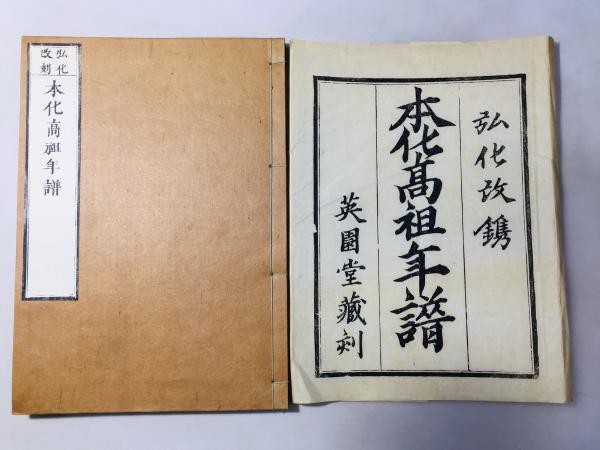 弘化
改刻
本化高祖年譜
弘化改鐫
本化髙祖年譜
英園堂藏刻